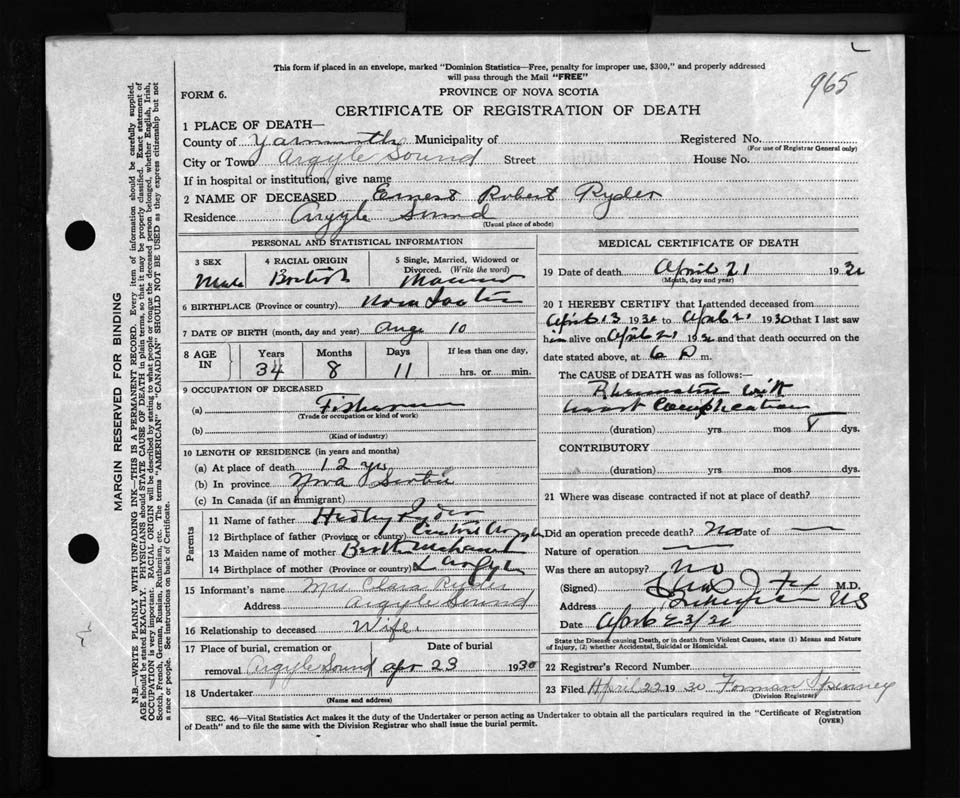 This form if placed in an envelope, marked "Dominion Statistics—Free, penalty for improper use, $300," and properly addressed
will pass through the Mail "FREE"
965
FORM 6.
PROVINCE OF NOVA SCOTIA
CERTIFICATE OF REGISTRATION OF DEATH
1 PLACE OF DEATH—
County of Yarmouth Municipality of Registered No.
(For use of Registrar General only)
City or Town Argyle Sound Street House No.
If in hospital or institution, give name
2 NAME OF DECEASED Ernest Robert Ryder
Residence Argyle Sound
(Usual place of abode)
PERSONAL AND STATISTICAL INFORMATION
3 SEX 4 RACIAL ORIGIN 5 Single, Married, Widowed or
Divorced. (Write the word)
Male British Married
6 BIRTHPLACE (Province or country) Nova Scotia
7 DATE OF BIRTH (month, day and year) Aug 10
8 AGE IN Years Months Days If less than one day,
34 8 11 hrs. or min.
9 OCCUPATION OF DECEASED
(a) Fisherman
(Trade or occupation or kind of work)
(b)
(Kind of industry)
10 LENGTH OF RESIDENCE (in years and months)
(a) At place of death 12 yrs
(b) In province Nova Scotia
(c) In Canada (if an immigrant)
Parents
11 Name of father Hedley Ryder
12 Birthplace of father (Province or country) Central Argyle
13 Maiden name of mother
14 Birthplace of mother (Province or country) L Argyle
15 Informant's name Mrs Clara Ryder
Address Argyle Sound
16 Relationship to deceased Wife
17 Place of burial, cremation or Date of burial
removal Argyle Sound apr 23 1930
18 Undertaker
(Name and address)
MEDICAL CERTIFICATE OF DEATH
19 Date of death April 21 1930
(Month, day and year)
20 I HEREBY CERTIFY that I attended deceased from
April 13 1930 to April 21 1930 that I last saw
him alive on April 21 1930 and that death occurred on the
date stated above, at 6 P m.
The CAUSE of DEATH was as follows:—
Rheumatism with
heart Complication
(duration) yrs mos 8 dys.
CONTRIBUTORY
(duration) yrs. mos. dys.
21 Where was disease contracted if not at place of death?
Did an operation precede death? No Date of
Nature of operation
Was there an autopsy? No
(Signed) Fox M.D.
Address NS
Date April 23/30
State the Disease causing Death, or in death from Violent Causes, state (1) Means and Nature
of Injury, (2) whether Accidental, Suicidal or Homicidal.
22 Registrar's Record Number
23 Filed April 22 1930 Forman Spinney
(Division Registrar)
SEC. 46—Vital Statistics Act makes it the duty of the Undertaker or person acting as Undertaker to obtain all the particulars required in the "Certificate of Registration
of Death" and to file the same with the Division Registrar who shall issue the burial permit.
(OVER)
MARGIN RESERVED FOR BINDING
N.B.—WRITE PLAINLY WITH UNFADING INK—THIS IS A PERMANENT RECORD. Every item of information should be carefully supplied.
AGE should be stated EXACTLY. PHYSICIANS should STATE CAUSE OF DEATH in plain terms, so that it may be properly classified. Exact statement of
OCCUPATION is very important. RACIAL ORIGIN will be described by stating to what people or tongue the deceased person belonged, whether English, Irish,
Scotch, French, German, Russian, Ruthenian, etc. The terms "AMERICAN" or "CANADIAN" SHOULD NOT BE USED as they express citizenship but not
a race or people. See instructions on back of Certificate.